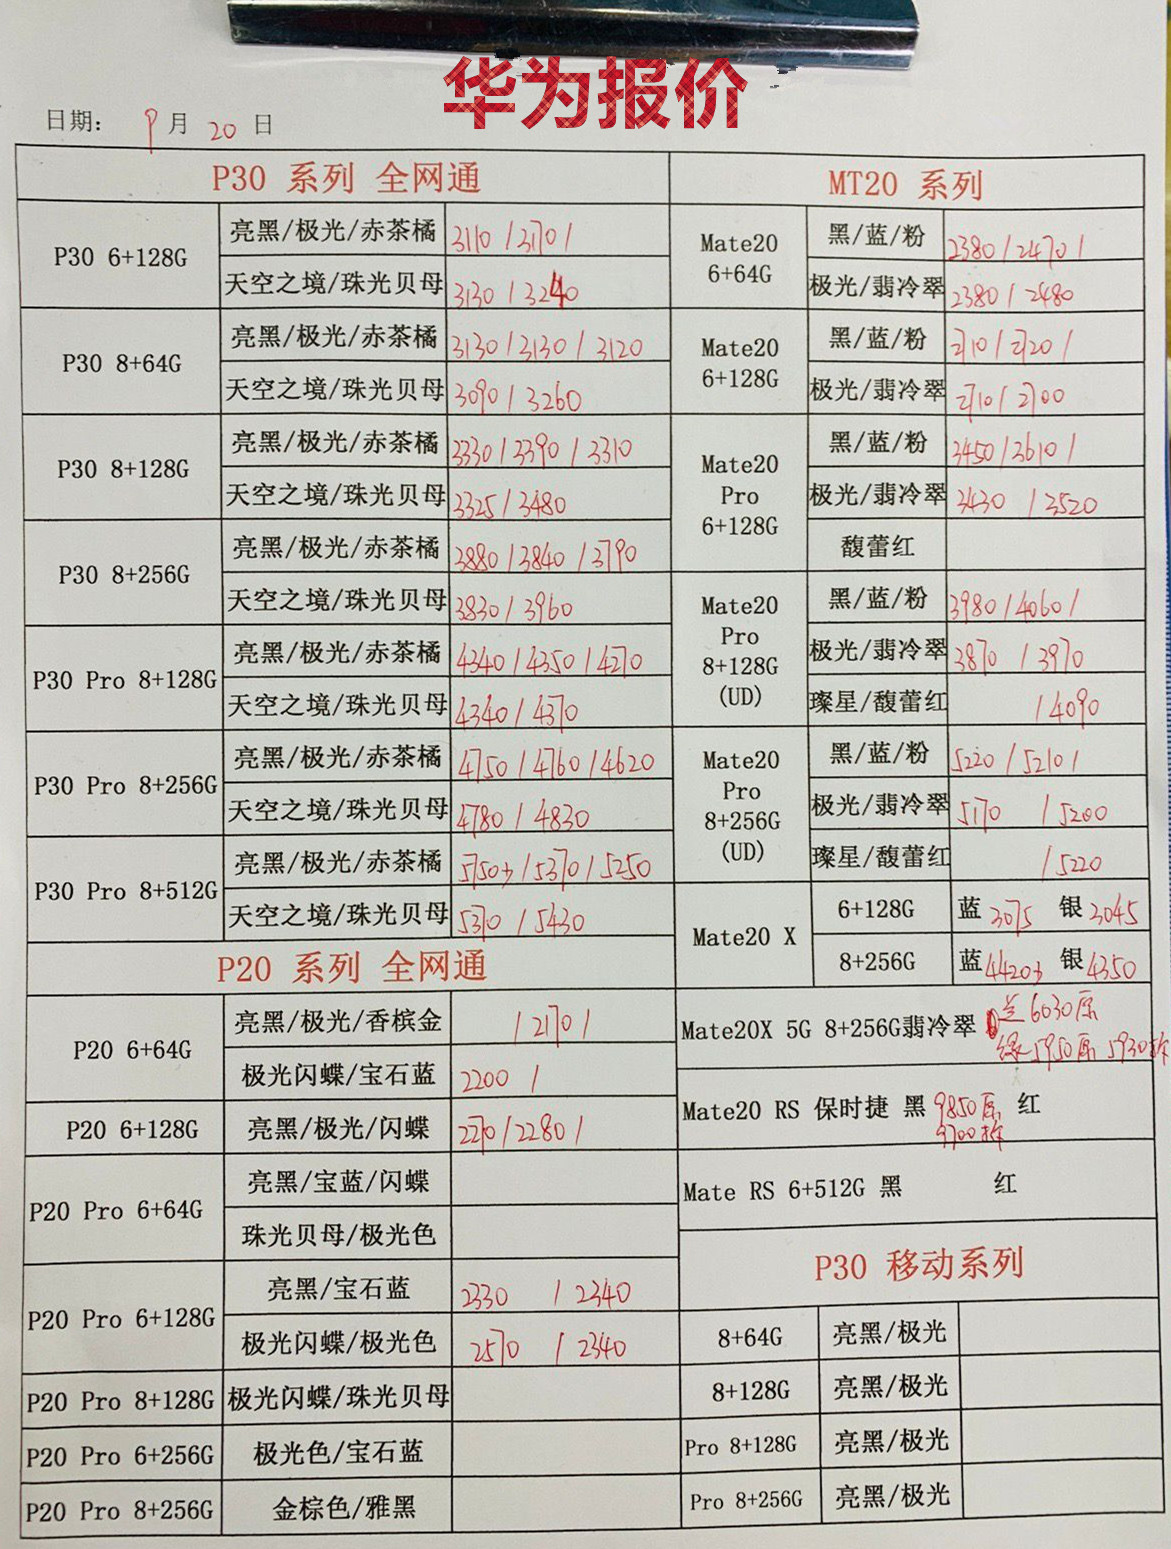 华为报价
日期: 9月20日
P30 系列 全网通
P30 6+128G
亮黑/极光/赤茶橘 3110/3170/
天空之境/珠光贝母 3130/3240
P30 8+64G
亮黑/极光/赤茶橘 3130/3130/3120
天空之境/珠光贝母 3090/3260
P30 8+128G
亮黑/极光/赤茶橘 3330/3390/3310
天空之境/珠光贝母 3325/3480
P30 8+256G
亮黑/极光/赤茶橘 3880/3840/3790
天空之境/珠光贝母 3830/3960
P30 Pro 8+128G
亮黑/极光/赤茶橘 4340/4350/4270
天空之境/珠光贝母 4340/4370
P30 Pro 8+256G
亮黑/极光/赤茶橘 4750/4760/4620
天空之境/珠光贝母 4780/4830
P30 Pro 8+512G
亮黑/极光/赤茶橘 5750/5370/5250
天空之境/珠光贝母 5370/5430
P20 系列 全网通
P20 6+64G
亮黑/极光/香槟金 /2170/
极光闪蝶/宝石蓝 2200 /
P20 6+128G
亮黑/极光/闪蝶 2270/2280/
P20 Pro 6+64G
亮黑/宝蓝/闪蝶
珠光贝母/极光色
P20 Pro 6+128G
亮黑/宝石蓝 2330 /2340
极光闪蝶/极光色 2570 /2340
P20 Pro 8+128G 极光闪蝶/珠光贝母
P20 Pro 6+256G 极光色/宝石蓝
P20 Pro 8+256G 金棕色/雅黑
MT20 系列
Mate20
6+64G
黑/蓝/粉 2380/2470/
极光/翡冷翠 2380/2480
Mate20
6+128G
黑/蓝/粉 2710/2720/
极光/翡冷翠 2710/2700
Mate20
Pro
6+128G
黑/蓝/粉 3450/3610/
极光/翡冷翠 3430 /3520
馥蕾红
Mate20
Pro
8+128G
(UD)
黑/蓝/粉 3980/4060/
极光/翡冷翠 3870 /3970
璨星/馥蕾红 /4090
Mate20
Pro
8+256G
(UD)
黑/蓝/粉 5220/5210/
极光/翡冷翠 5170 /5200
璨星/馥蕾红 /5220
Mate20 X
6+128G 蓝3075 银3045
8+256G 蓝4420 银4350
Mate20X 5G 8+256G翡冷翠 兰6030原
绿5950原 5930拆
Mate20 RS 保时捷 黑 9850原 红
9700拆
Mate RS 6+512G 黑 红
P30 移动系列
8+64G 亮黑/极光
8+128G 亮黑/极光
Pro 8+128G 亮黑/极光
Pro 8+256G 亮黑/极光